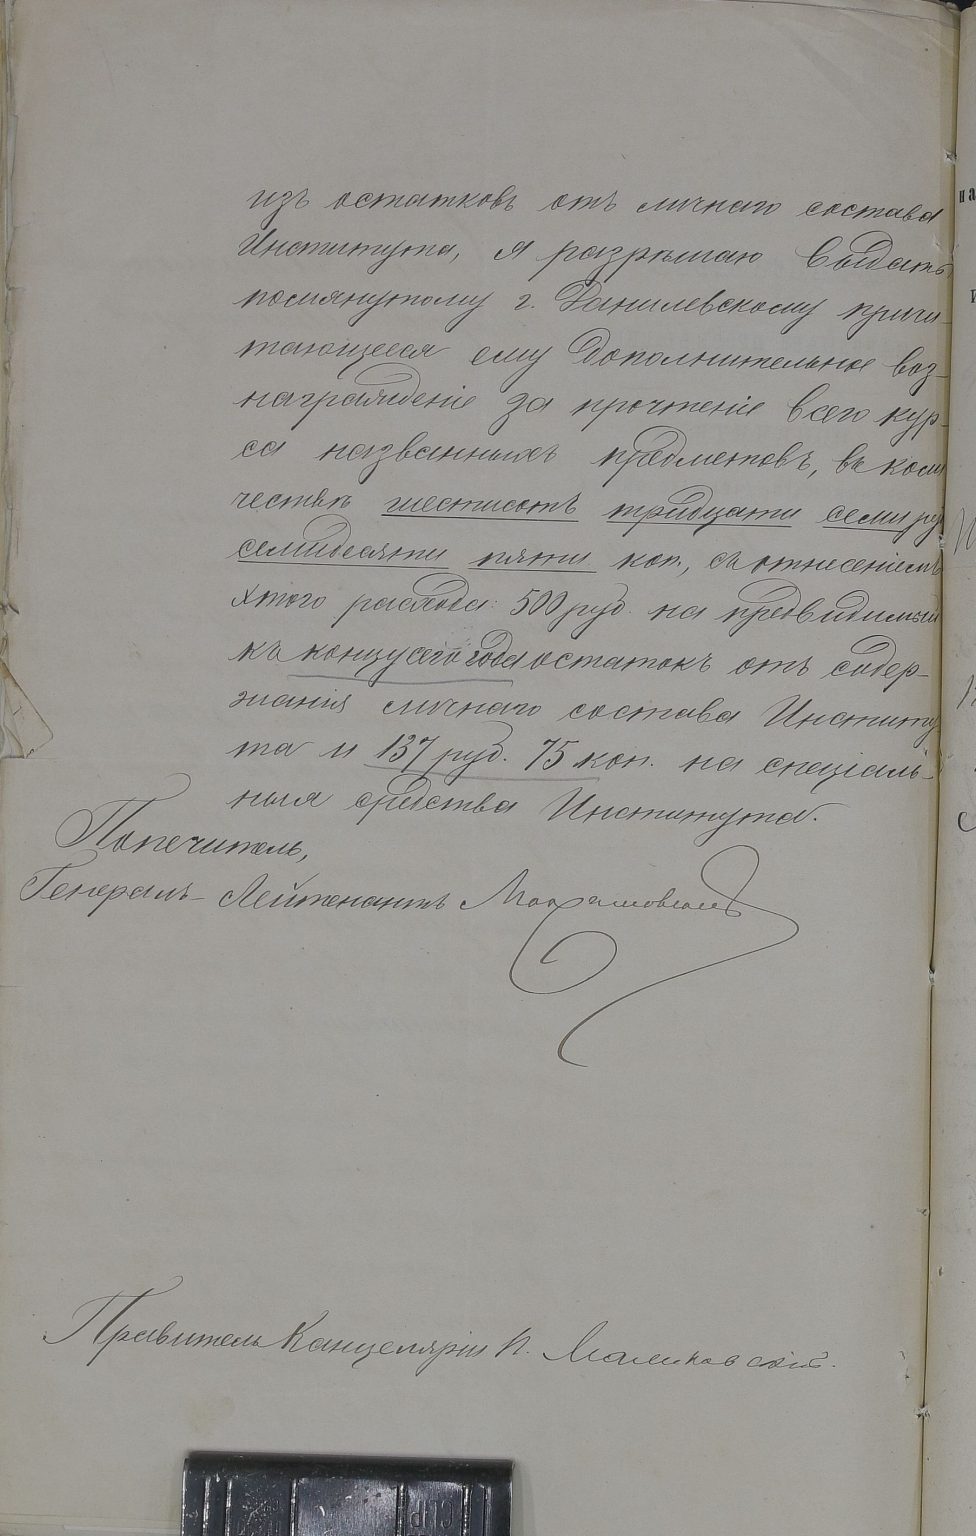 изъ остатковъ отъ личнаго состава
Института, я разрѣшаю выдать
помянутому г. Данилевскому причи-
тающееся ему дополнительное воз-
награжденіе за прочтеніе всего кур-
са названныхъ предметовъ, въ коли
чествѣ шестисотъ тридцати семи руб
семидесяти пяти коп., съ отнесеніемъ
этого расхода: 500 руб. на предвидимый
къ концу сего года остатокъ отъ содер-
жанія личнаго состава Институ
та и 137 руб. 75 коп. на спеціаль-
ныя средства Института.
Попечитель,
Генералъ-Лейтенантъ
Правитель Канцеляріи
CLIP